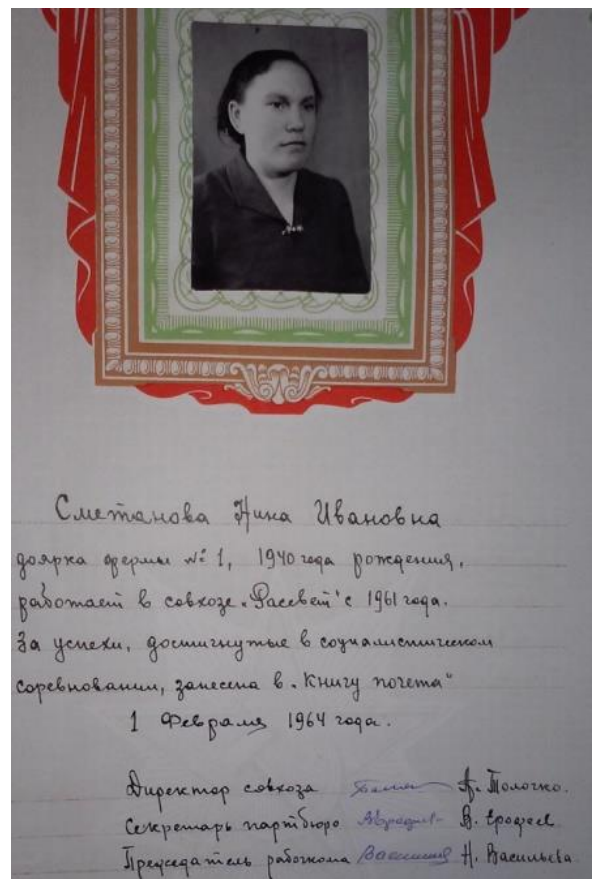 Сметанова Нина Ивановна
доярка фермы № 1, 1940 года рождения,
работает в совхозе „Рассвет" с 1961 года.
За успехи, достигнутые в социалистическом
соревновании, занесена в „Книгу почета"
1 Февраля 1964 года.
Директор совхоза А. Толочко.
Секретарь партбюро В. Ерофеев
Председатель рабочкома Н. Васильева